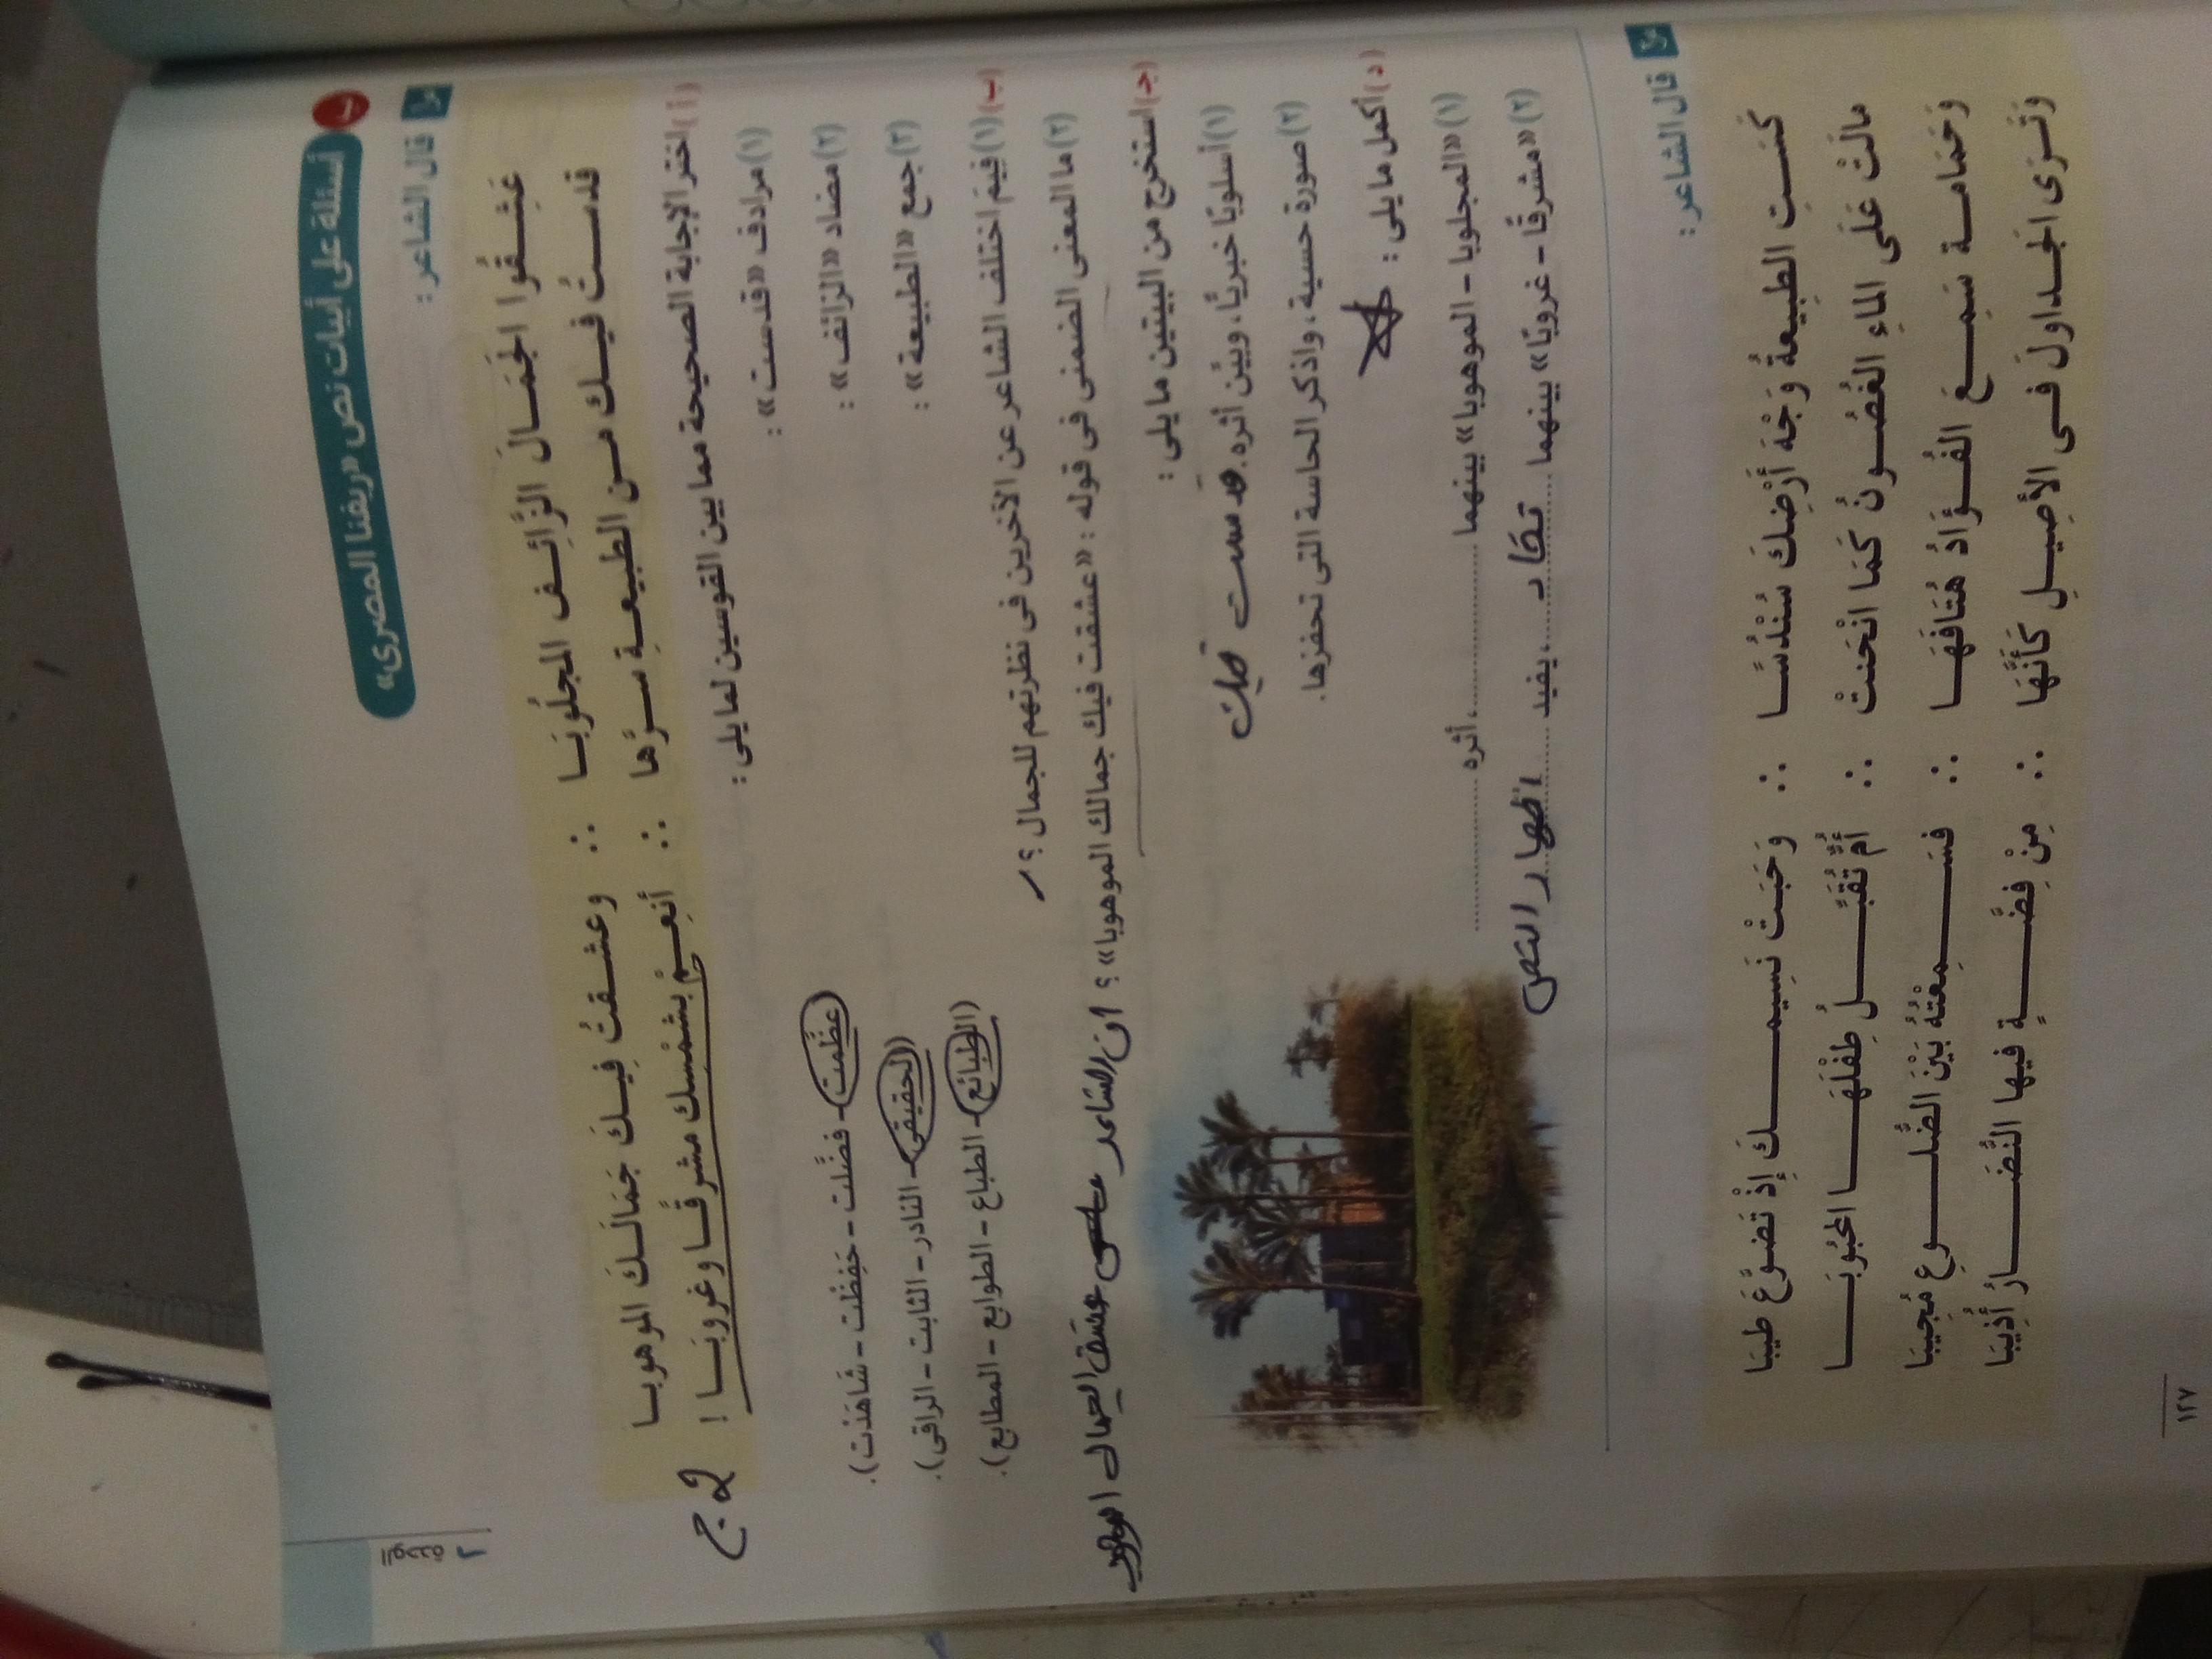 الوحدة
٢
ب أسئلة على أبيات نص «ريفنا المصرى»
قال الشاعر :
عَشِقُوا الجَمَالَ الزَّائِف المجلُوبَا ∴ وعشقتُ فِيكَ جَمَالَكَ الموهوبا
قدستُ فيك من الطبيعةِ سرَّها ∴ أنعِمْ بشمْسك مشرقًا وغروبَا !
ج ٢
(أ) اختر الإجابة الصحيحة مما بين القوسين لما يلى :
(١) مرادف «قدست» : (عظَّمت - فضَّلت - حَفِظْت - شاهَدْت).
(٢) مضاد «الزائف» : (الحقيقى - النادر - الثابت - الراقى).
(٣) جمع «الطبيعة» : (الطبائع - الطباع - الطوابع - المطابع).
(ب) (١) فيمَ اختلف الشاعر عن الآخرين فى نظرتهم للجمال ؟
(٢) ما المعنى الضمنى فى قوله : «عشقت فيك جمالك الموهوبا» ؟ ان الشاعر عشق الجمال
(جـ) استخرج من البيتين ما يلى :
(١) أسلوبًا خبريًّا، وبيِّن أثره. قدست فيك
(٢) صورة حسية، واذكر الحاسة التى تحفزها.
(د) أكمل ما يلى :
(١) «المجلوبا - الموهوبا» بينهما ..................، أثره ..................
(٢) «مشرقًا - غروبًا» بينهما .... تضاد ....، يفيد .... اظهار النص
قال الشاعر :
كَسَتِ الطبِيعةُ وَجْهَ أَرْضِكَ سُنْدُسًا ∴ وَحَبَتْ نَسِيمكَ إِذْ تَضوَّعَ طيبَا
مالَتْ عَلَى الماءِ الغُصُونُ كَمَا انْحَنتْ ∴ أُمٌّ تُقَبِّلُ طِفْلَهَا المحْبُوبَا
وَحَمَامة سَمِعَ الفُؤَادُ هُتَافَهَا ∴ فسَمِعْتُهُ بَيْنَ الضُّلوعِ مُجِيبَا
وَتَرَى الجَداولَ فى الأصِيلِ كَأَنَّهَا ∴ مِنْ فِضَّةٍ فيها النُّضَارُ أُذِيبَا
١٢٧